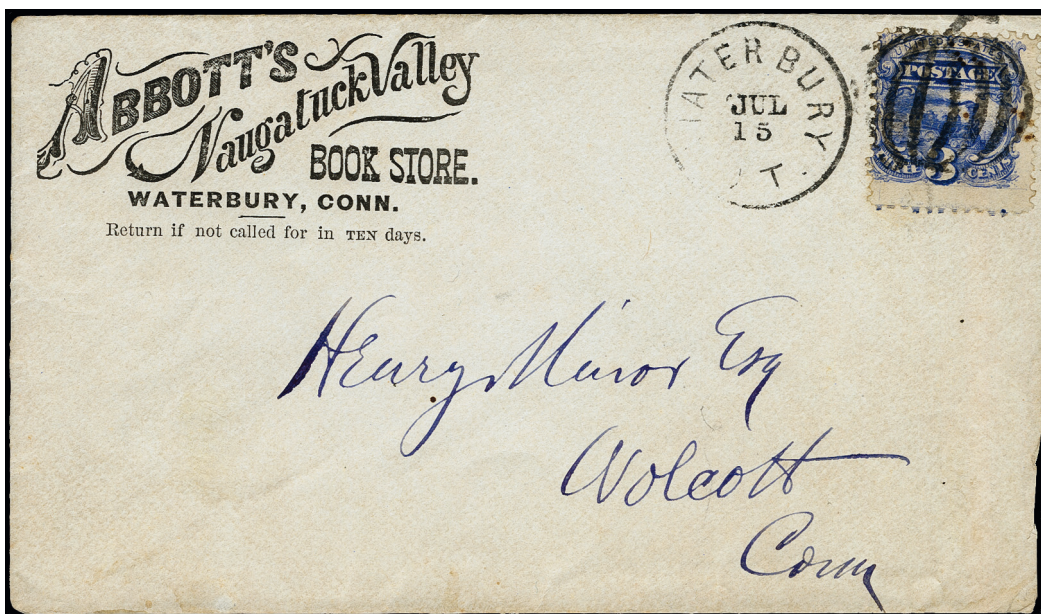 ABBOTT'S
Naugatuck Valley
BOOK STORE.
WATERBURY, CONN.
Return if not called for in TEN days.
WATERBURY
JUL
15
T.
UNITED STATES
POSTAGE
3
CENTS
Henry Minor Esq
Wolcott
Conn